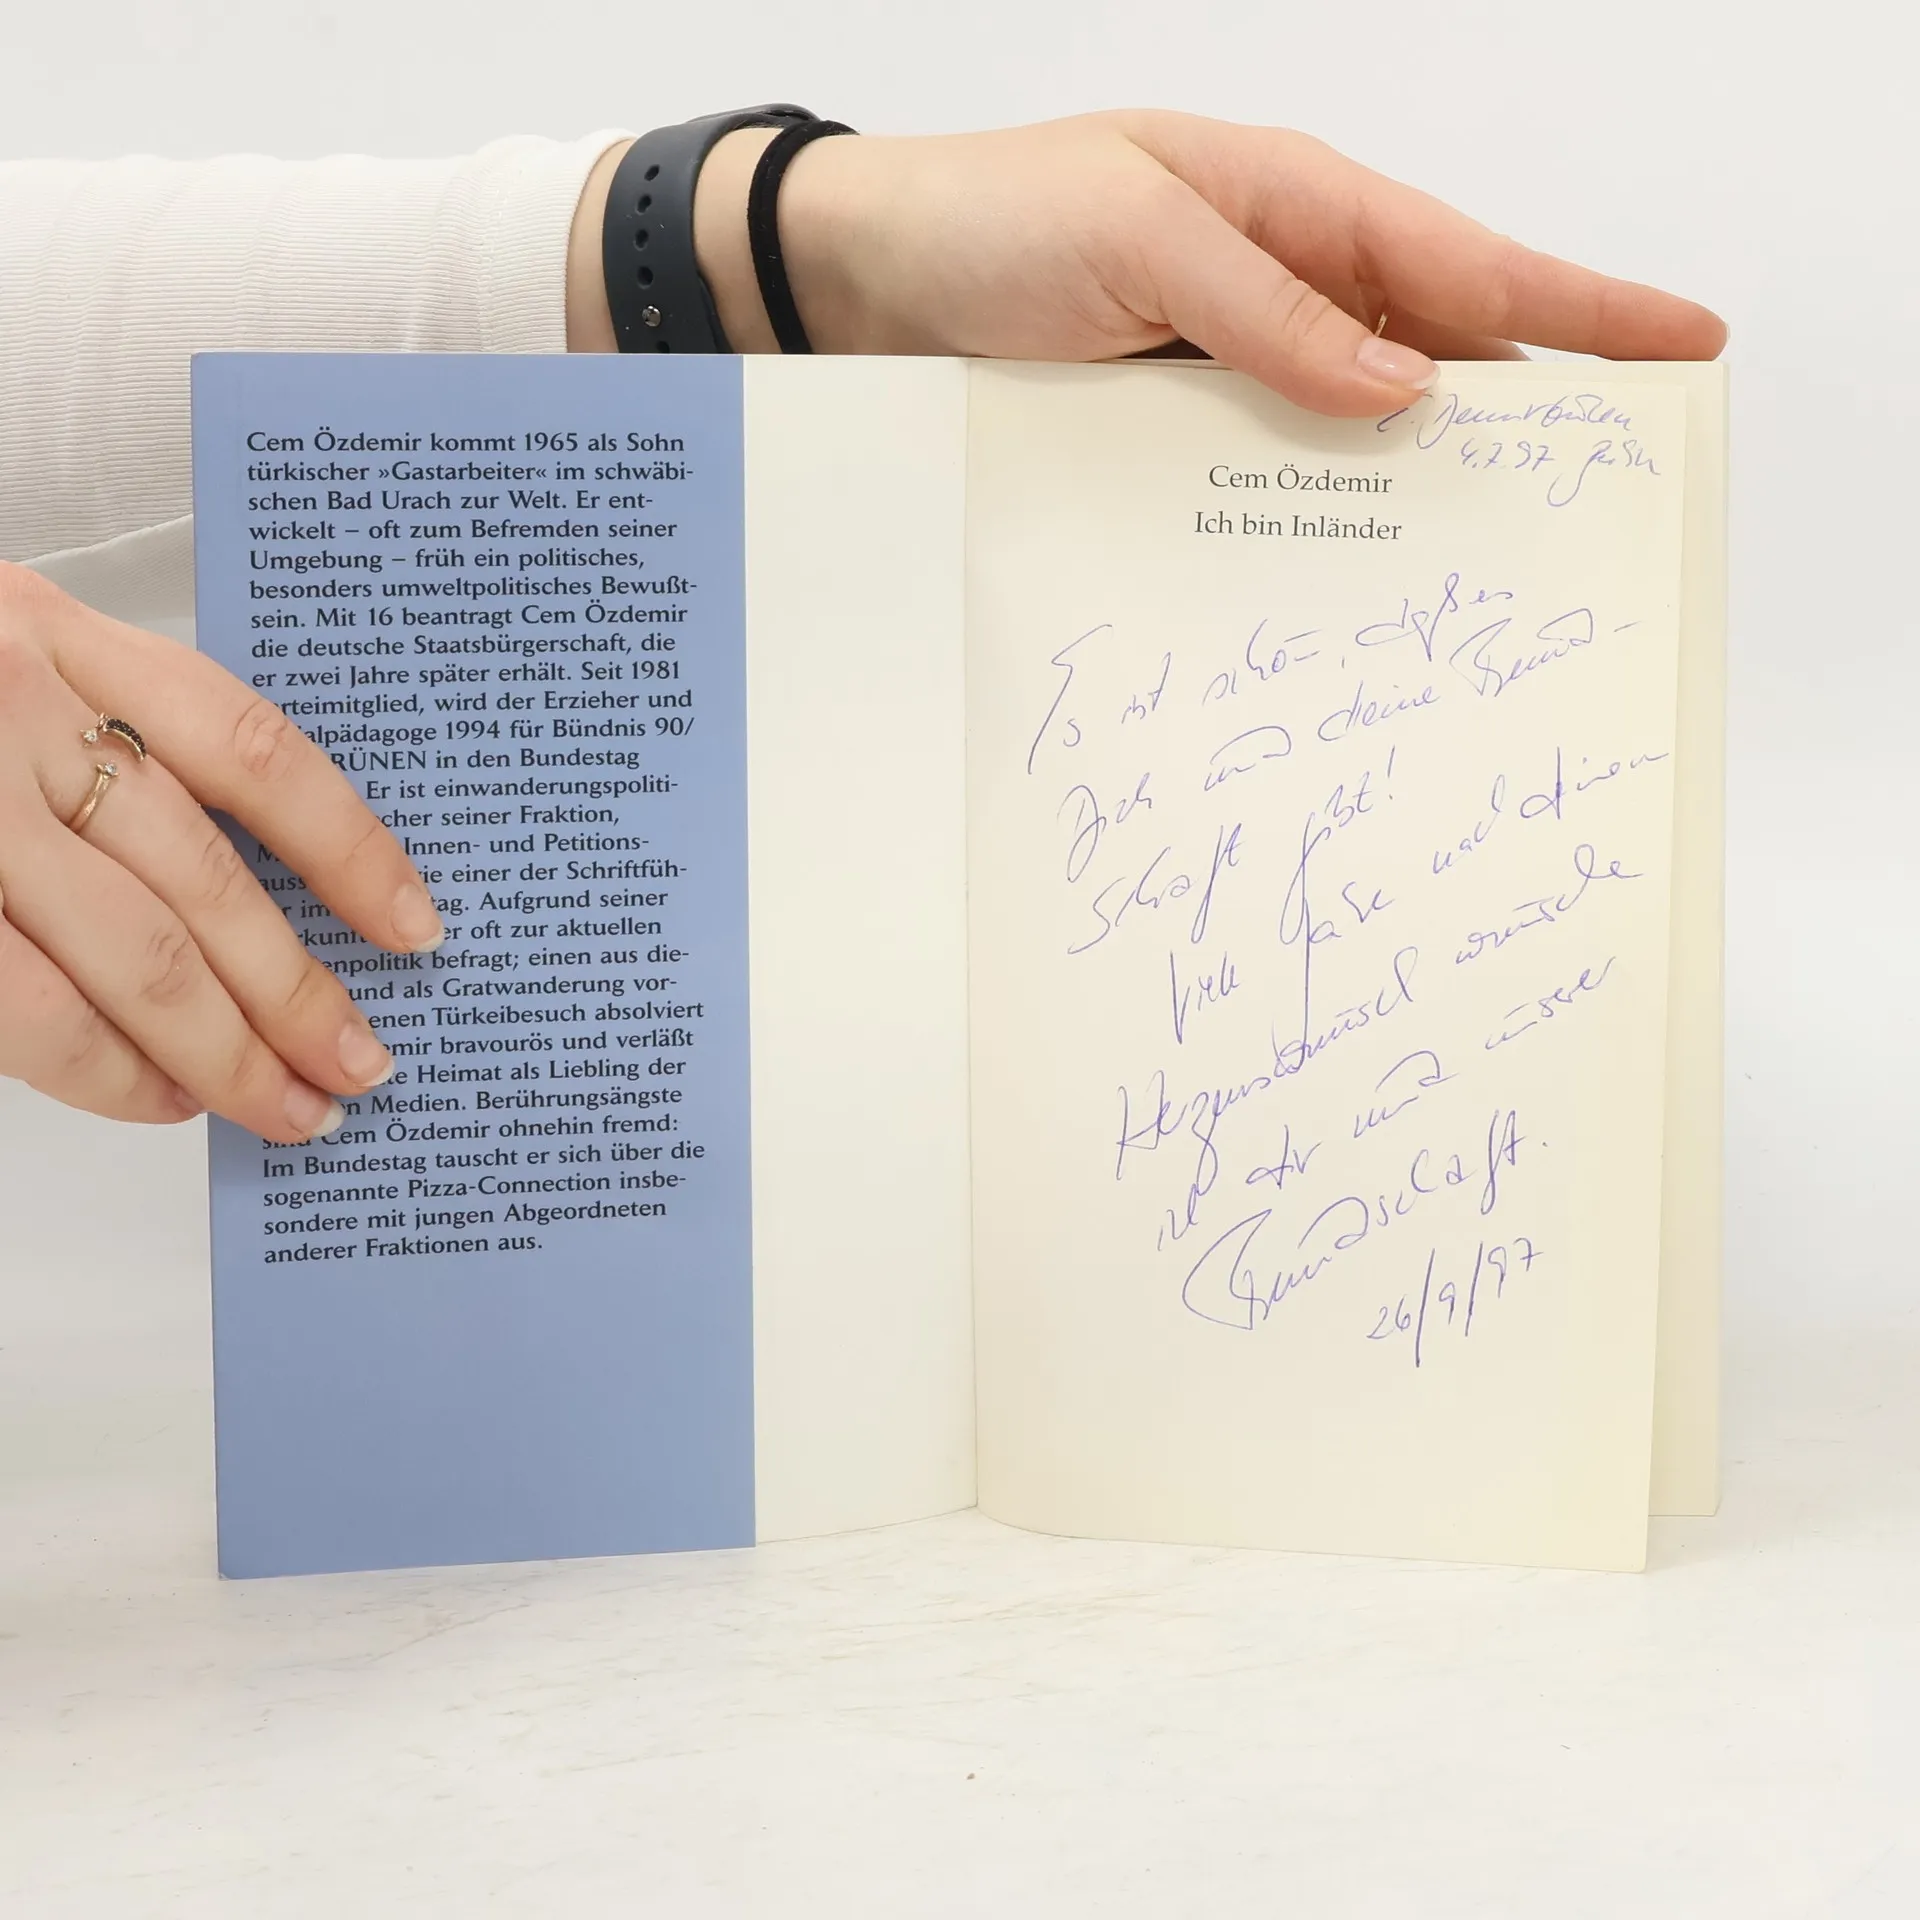 Cem Özdemir kommt 1965 als Sohn
türkischer »Gastarbeiter« im schwäbi-
schen Bad Urach zur Welt. Er ent-
wickelt – oft zum Befremden seiner
Umgebung – früh ein politisches,
besonders umweltpolitisches Bewußt-
sein. Mit 16 beantragt Cem Özdemir
die deutsche Staatsbürgerschaft, die
er zwei Jahre später erhält. Seit 1981
rteimitglied, wird der Erzieher und
alpädagoge 1994 für Bündnis 90/
RÜNEN in den Bundestag
Er ist einwanderungspoliti-
cher seiner Fraktion,
Innen- und Petitions-
auss ie einer der Schriftfüh-
r im tag. Aufgrund seiner
rkunft er oft zur aktuellen
enpolitik befragt; einen aus die-
und als Gratwanderung vor-
enen Türkeibesuch absolviert
mir bravourös und verläßt
te Heimat als Liebling der
n Medien. Berührungsängste
sind Cem Özdemir ohnehin fremd:
Im Bundestag tauscht er sich über die
sogenannte Pizza-Connection insbe-
sondere mit jungen Abgeordneten
anderer Fraktionen aus.
4.7.97
Cem Özdemir
Ich bin Inländer
Es ist schön, daß es
Dich und deine Freund-
schaft gibt!
Viele Jahre nach deinem
Herzenswunsch wünsche
ich dir und unserer
Freundschaft.
26/9/97